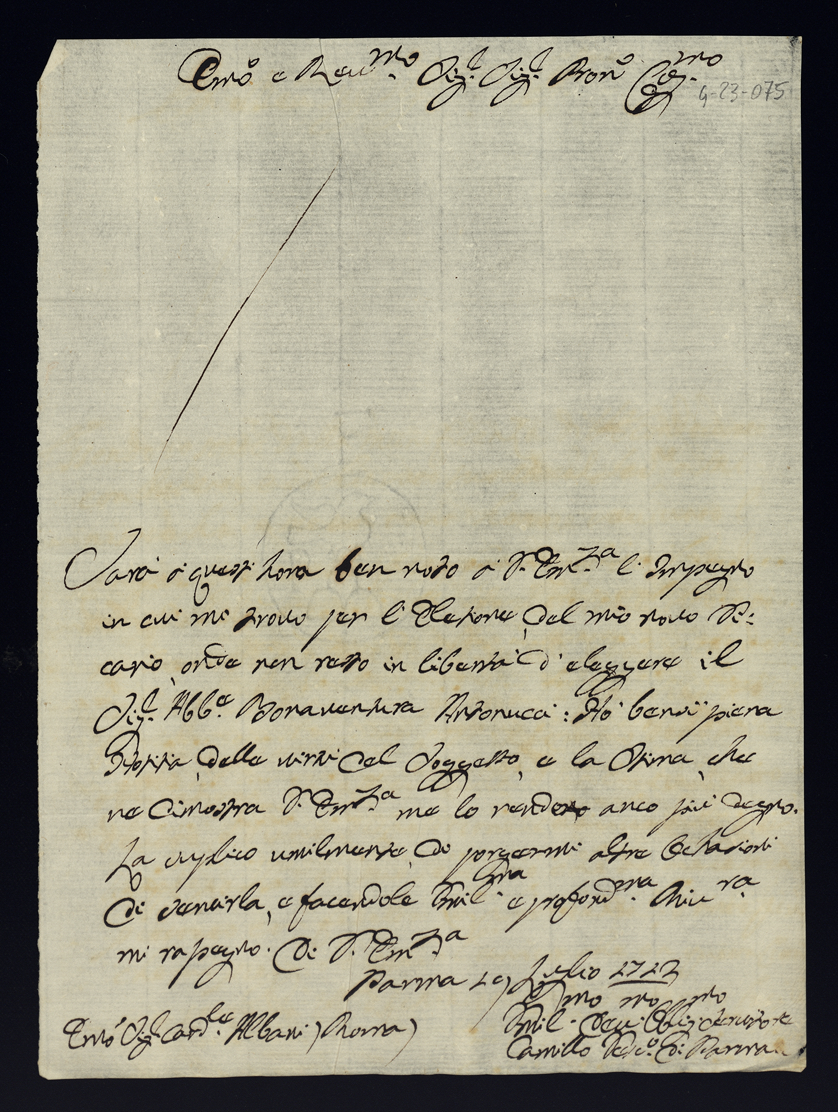 Em.o e Reu.mo Sig.r Sig.r Pron.o Col.mo
4-23-075
Sarà à quest'hora ben noto à V. Em.za l'Impegno
in cui mi trovo per l'Elezione del mio novo Vi:
cario, onde non resto in libertà d'eleggere il
Sig.r Abb.e Bonaventura Antonucci: Hò bensì piena
Notitia delle virtù del Soggetto, e la Stima, che
ne dimostra V. Em.za me lo rende anco più degno.
La supplico umilmente di porgermi altre occasioni
di servirla, e facendole Umil.ma e profond.ma Riu.ra
mi rassegno. Di V. Em.za
Parma 29 Luglio 1712
Em.o Sig.r Card.le Albani (Roma)
Umil.mo Deu.mo Oblig.mo Servitore
Camillo Vesc.o di Parma